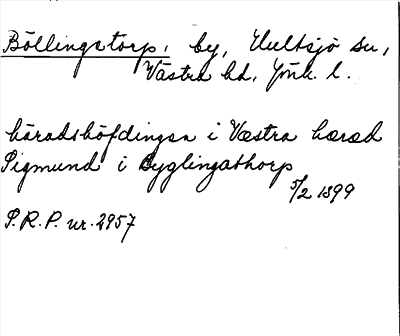 Böllingstorp, by, Hultsjö sn,
Västra hd, Jönk. l.
häradshöfdingen i Væstra hæræd
Sigmund i Byglingathorp
5/2 1399
S.R.P. nr. 2957